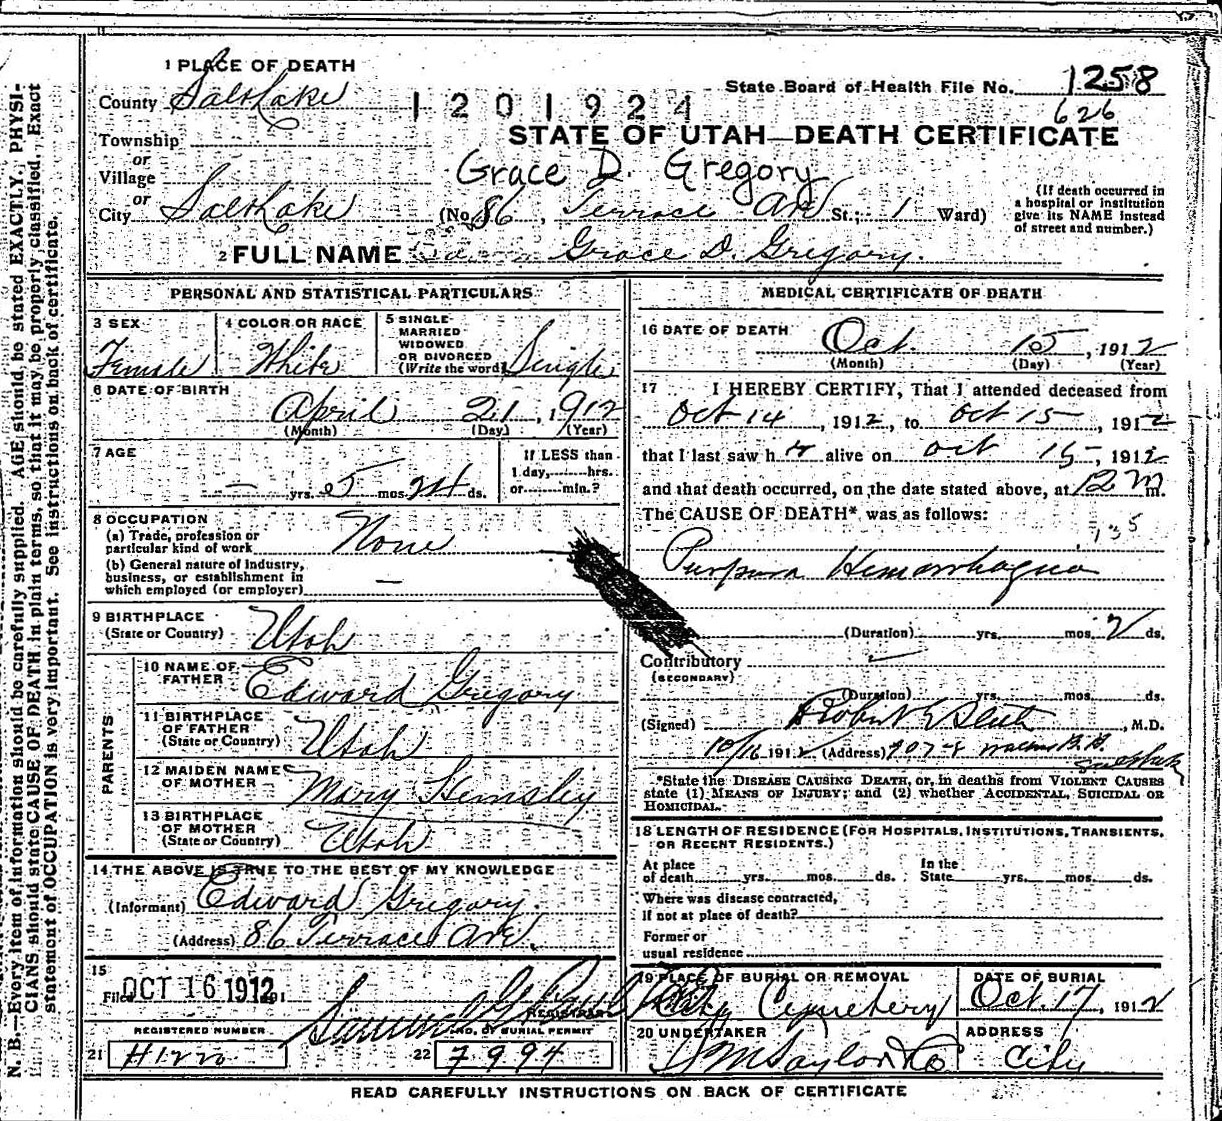 1 PLACE OF DEATH
County Salt Lake
1201924
State Board of Health File No. 1258
626
Township
or
Village
or
City Salt Lake
STATE OF UTAH—DEATH CERTIFICATE
Grace D. Gregory
(No. 86, Terrace Ave St.; 1 Ward)
(If death occurred in
a hospital or institution
give its NAME instead
of street and number.)
2 FULL NAME Grace D. Gregory.
PERSONAL AND STATISTICAL PARTICULARS
3 SEX
Female
4 COLOR OR RACE
White
5 SINGLE
MARRIED
WIDOWED
OR DIVORCED
(Write the word) Single
6 DATE OF BIRTH
April 21, 1912
(Month) (Day) (Year)
7 AGE
— yrs. 5 mos. 24 ds.
If LESS than
1 day, hrs.
or min.?
8 OCCUPATION
(a) Trade, profession or
particular kind of work None
(b) General nature of industry,
business, or establishment in
which employed (or employer) —
9 BIRTHPLACE
(State or Country) Utah
PARENTS
10 NAME OF
FATHER Edward Gregory
11 BIRTHPLACE
OF FATHER
(State or Country) Utah
12 MAIDEN NAME
OF MOTHER Mary Hemsley
13 BIRTHPLACE
OF MOTHER
(State or Country) Utah
14 THE ABOVE IS TRUE TO THE BEST OF MY KNOWLEDGE
(Informant) Edward Gregory.
(Address) 86 Terrace Ave.
15
Filed OCT 16 1912 191
REGISTRAR
REGISTERED NUMBER
21 H1220
NO. OF BURIAL PERMIT
22 7994
MEDICAL CERTIFICATE OF DEATH
16 DATE OF DEATH
Oct. 15, 1912
(Month) (Day) (Year)
17 I HEREBY CERTIFY, That I attended deceased from
Oct 14, 1912, to Oct 15, 1912
that I last saw h r alive on Oct 15, 1912
and that death occurred, on the date stated above, at 12 m.
The CAUSE OF DEATH* was as follows:
Purpura Hemorrhagica
(Duration) yrs. mos. 2 ds.
Contributory
(SECONDARY)
(Duration) yrs. mos. ds.
(Signed) Robert M.D.
10/16 1912 (Address) 407-8
*State the DISEASE CAUSING DEATH, or, in deaths from VIOLENT CAUSES
state (1) MEANS OF INJURY; and (2) whether ACCIDENTAL, SUICIDAL OR
HOMICIDAL.
18 LENGTH OF RESIDENCE (FOR HOSPITALS, INSTITUTIONS, TRANSIENTS,
OR RECENT RESIDENTS.)
At place
of death yrs. mos. ds.
In the
State yrs. mos. ds.
Where was disease contracted,
if not at place of death?
Former or
usual residence
19 PLACE OF BURIAL OR REMOVAL
City Cemetery
DATE OF BURIAL
Oct. 17, 1912
20 UNDERTAKER
S M Taylor & Co
ADDRESS
City
READ CAREFULLY INSTRUCTIONS ON BACK OF CERTIFICATE
N. B.—Every item of information should be carefully supplied. AGE should be stated EXACTLY. PHYSI-
CIANS should state CAUSE OF DEATH in plain terms, so that it may be properly classified. Exact
statement of OCCUPATION is very important. See instructions on back of certificate.